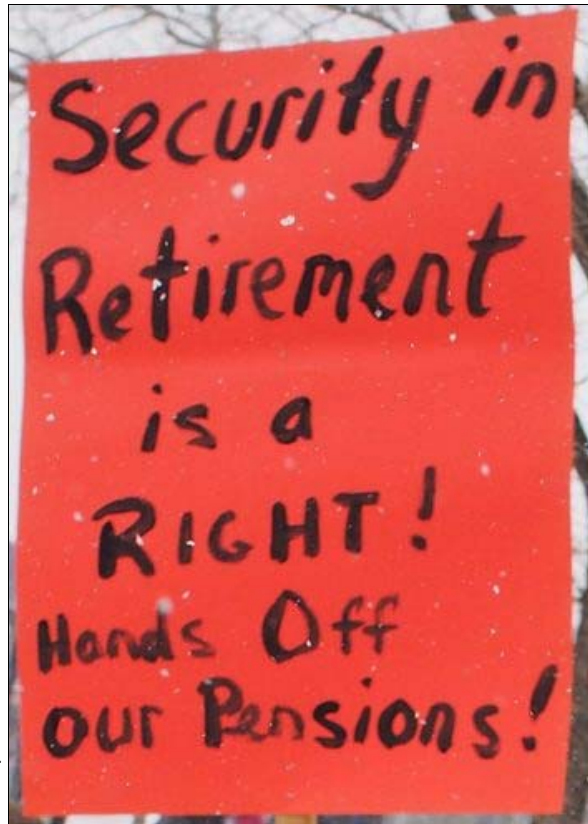 Security in
Retirement
is a
RIGHT!
Hands Off
our Pensions!